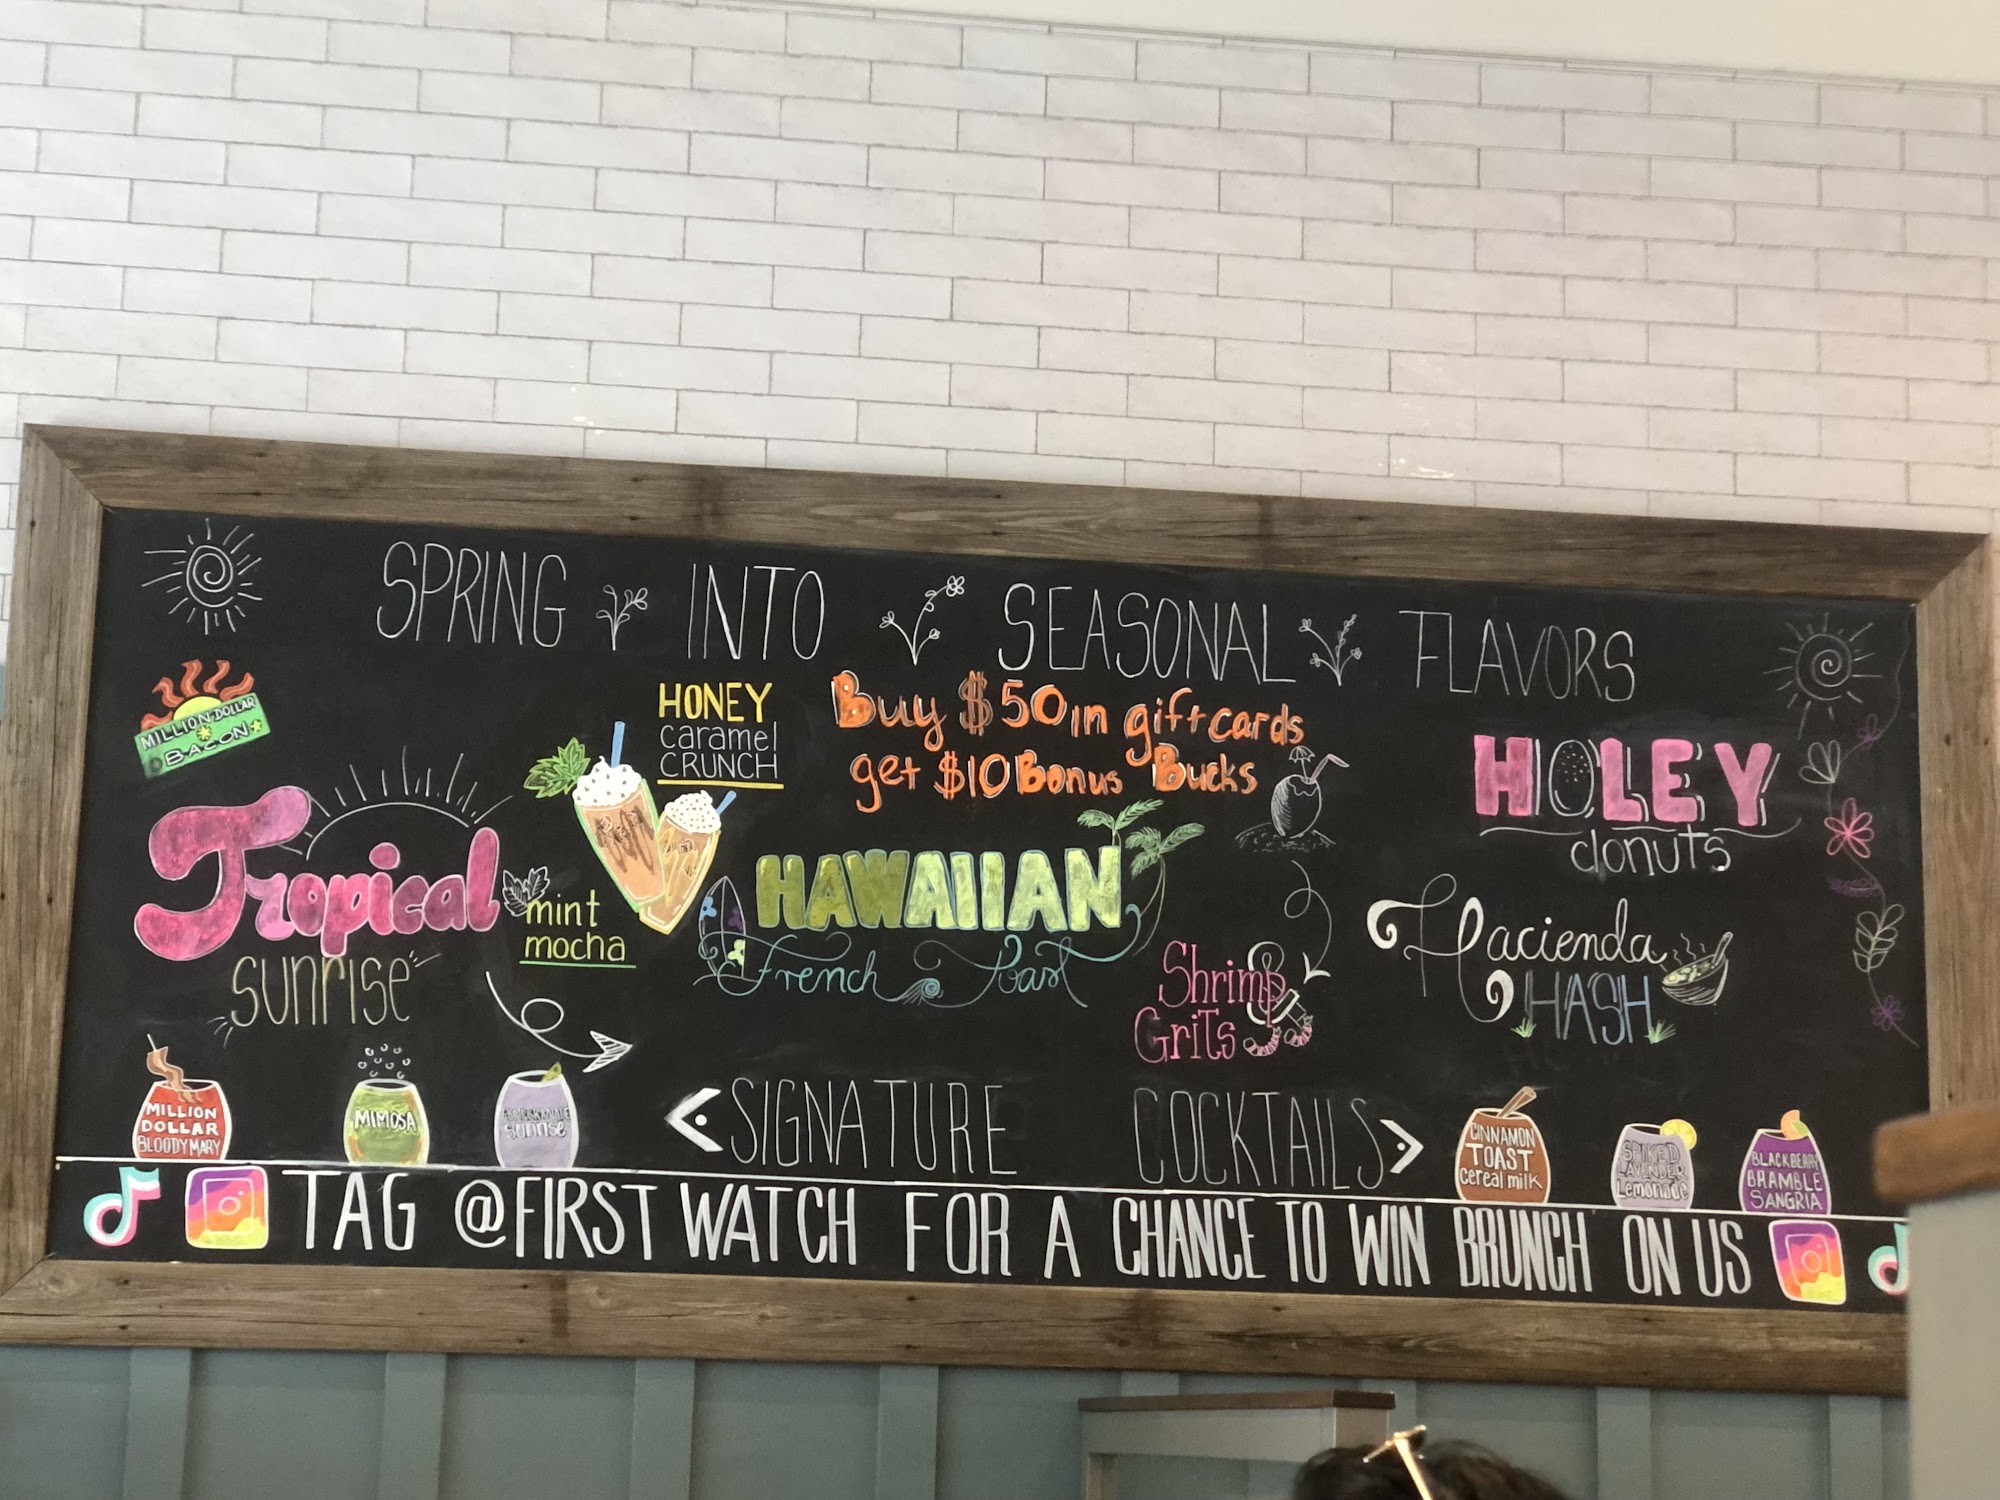 SPRING INTO SEASONAL FLAVORS
MILLION DOLLAR
BACON
HONEY
caramel
CRUNCH
Buy $50 in gift cards
get $10 Bonus Bucks
HOLEY
donuts
Tropical
sunrise
mint
mocha
HAWAIIAN
French Toast
Shrimp
Grits
Hacienda
HASH
MILLION
DOLLAR
BLOODY MARY
MIMOSA
sunrise
SIGNATURE COCKTAILS
CINNAMON
TOAST
cereal milk
SPIKED
LAVENDER
Lemonade
BLACKBERRY
BRAMBLE
SANGRIA
TAG @FIRST WATCH FOR A CHANCE TO WIN BRUNCH ON US